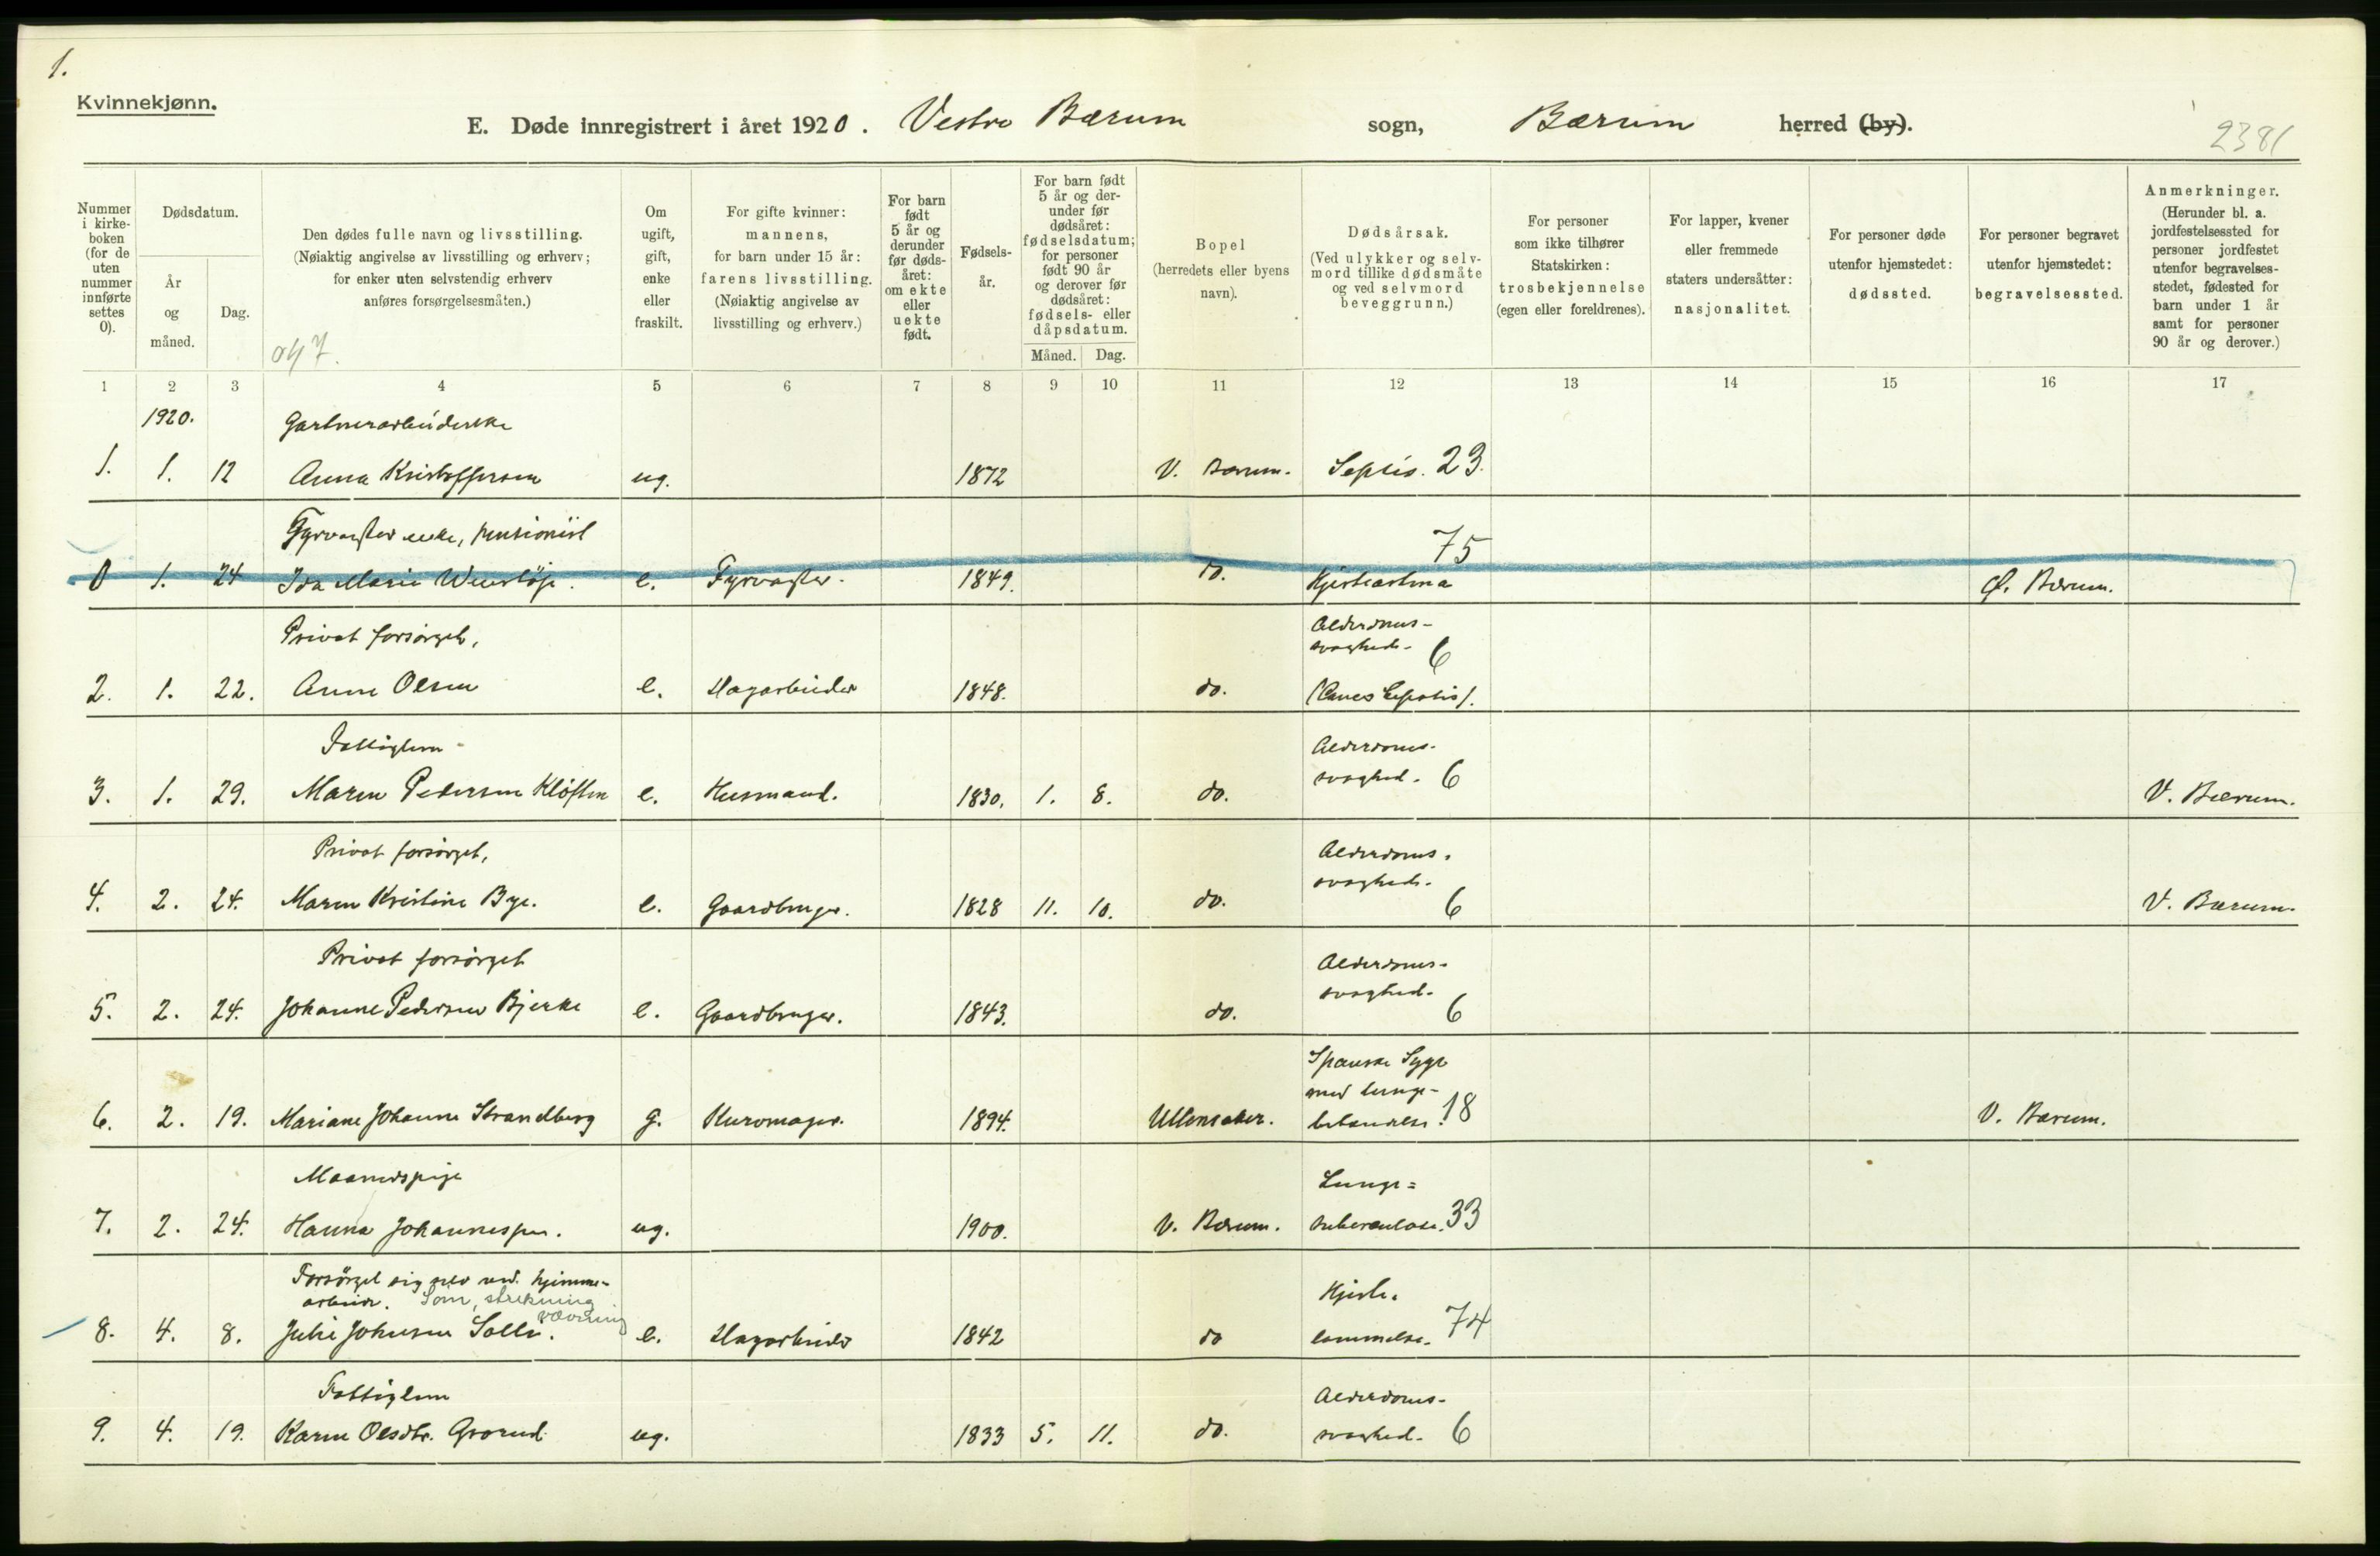 1.
Kvinnekjønn.
E. Døde innregistrert i året 1920. Vestre Bærum sogn, Bærum herred (by).
2381
Nummer i kirke-boken (for de uten nummer innførte settes 0).
Dødsdatum.
År og måned.
Dag.
Den dødes fulle navn og livsstilling.
(Nøiaktig angivelse av livsstilling og erhverv;
for enker uten selvstendig erhverv
anføres forsørgelsesmåten.)
047.
Om ugift, gift, enke eller fraskilt.
For gifte kvinner:
mannens,
for barn under 15 år:
farens livsstilling.
(Nøiaktig angivelse av
livsstilling og erhverv.)
For barn født 5 år og derunder før døds-året: om ekte eller uekte født.
Fødsels-år.
For barn født 5 år og der-under før dødsåret: fødselsdatum; for personer født 90 år og derover før dødsåret: fødsels- eller dåpsdatum.
Måned. Dag.
Bopel
(herredets eller byens
navn).
Dødsårsak.
(Ved ulykker og selv-
mord tillike dødsmåte
og ved selvmord
beveggrunn.)
For personer
som ikke tilhører
Statskirken:
trosbekjennelse
(egen eller foreldrenes).
For lapper, kvener
eller fremmede
staters undersåtter:
nasjonalitet.
For personer døde
utenfor hjemstedet:
dødssted.
For personer begravet
utenfor hjemstedet:
begravelsessted.
Anmerkninger.
(Herunder bl. a.
jordfestelsessted for
personer jordfestet
utenfor begravelses-
stedet, fødested for
barn under 1 år
samt for personer
90 år og derover.)
1 2 3 4 5 6 7 8 9 10 11 12 13 14 15 16 17
1920. Gartnerarbeiderske
1. 1. 12 Anna Kristoffersen ug. 1872 V. Bærum. Sepsis. 23.
Fyrvogter enke, pensionist 75
0 1. 24 Ida Marie e. Fyrvogter. 1849. do. Hjerteastma Ø. Bærum.
Privat forsørget, Alderdoms-
svaghed. 6
2. 1. 22. Anne Olsen e. Hagarbeider 1848. do. (Canc. hepatis).
Fattiglem Alderdoms-
3. 1. 29. Maren Pedersen Kløften e. Husmand. 1830. 1. 8. do. svaghed. 6 V. Bærum.
Privat forsørget, Alderdoms-
svaghed.
4. 2. 24. Maren Kristine Bye. e. Gaardbruger. 1828 11. 10. do. 6 V. Bærum.
Privat forsørget Alderdoms-
svaghed.
5. 2. 24. Johanne Pedersen Bjerke e. Gaardbruger. 1843. do. 6
Spanske Syge
med lunge-
6. 2. 19. Mariane Johanne Strandberg g. Kurvmager. 1894. Ullensaker. betændelse. 18 V. Bærum.
Maanedspige Lunge=
7. 2. 24. Hanna Johannesen. ug. 1900. V. Bærum. tuberculose. 33
Forsørget sig selv ved hjemme-
arbeide. Søm, strikning Hjerte-
vævning
8. 4. 8. Julie Johnsen Solli. e. Hagarbeider 1842 do lammelse. 74
Fattiglem Alderdoms-
9. 4. 19. Karen Olsdtr. Grorud ug. 1833 5. 11. do. svaghed. 6